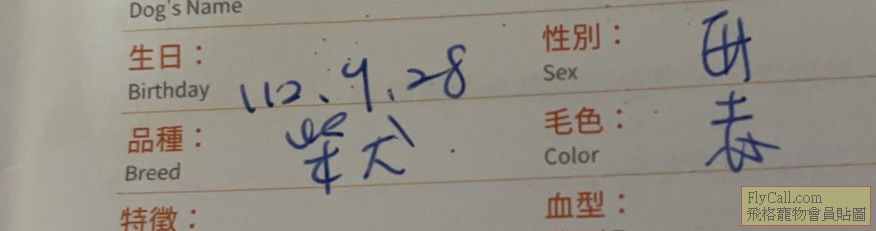 Dog's Name
生日： 112.9.28 性別：
Birthday Sex
品種： 柴犬 毛色： 赤
Breed Color
特徵： 血型：
FlyCall.com
飛格寵物會員貼圖